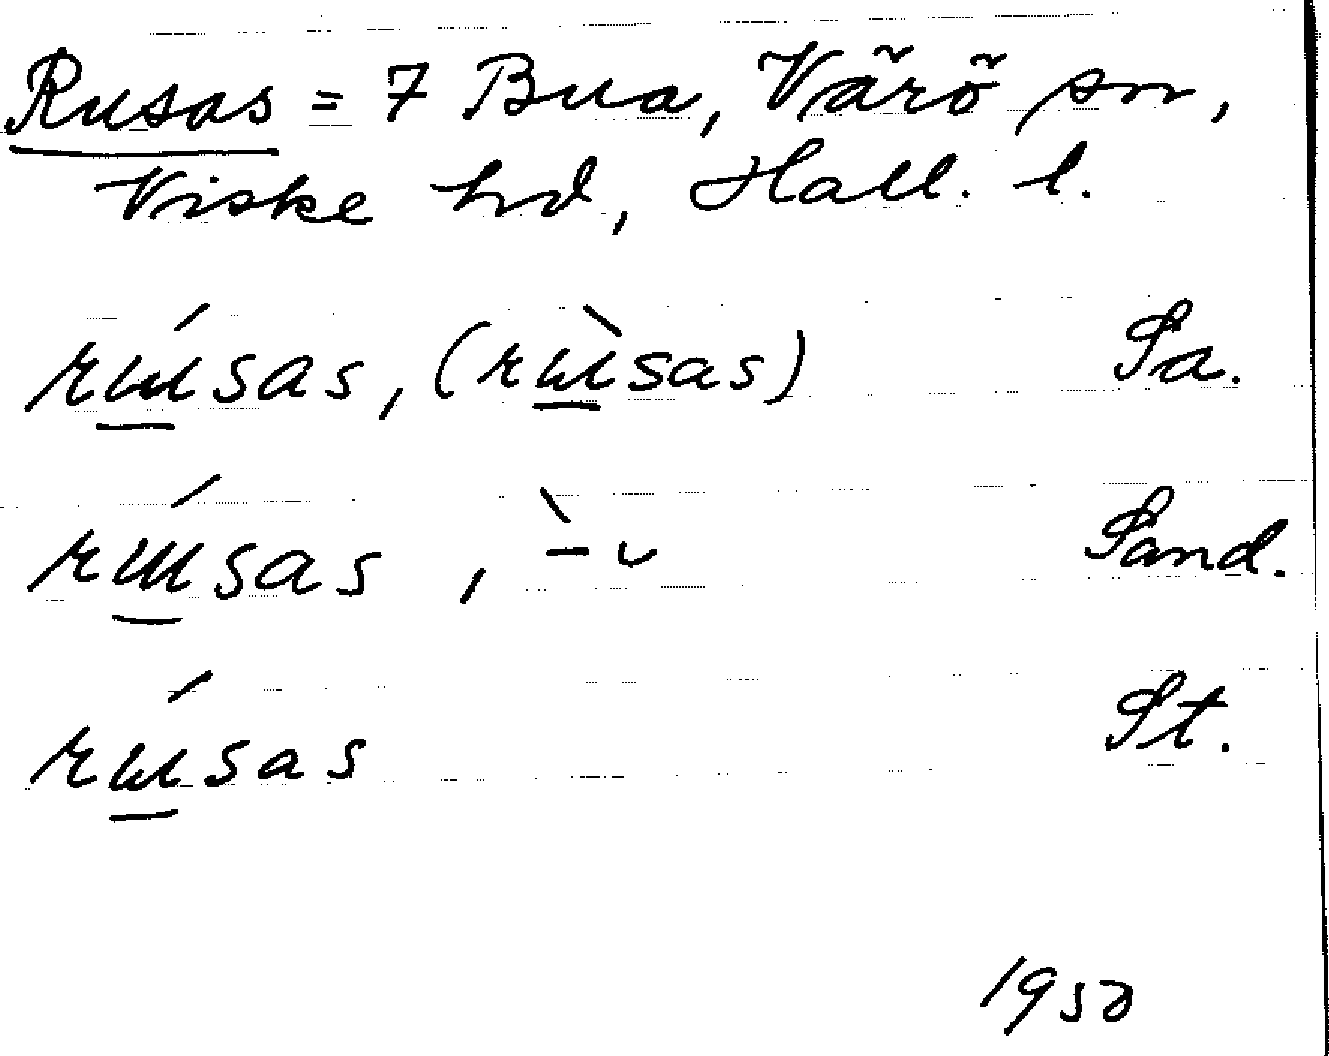 Rusas = 7 Bua, Värö sn,
Viske hd, Hall. l.
rɯ́sas, (rɯ̀sas) Sa.
rɯ́sas, -̀ ᴗ Sand.
rɯ́sas St.
1950